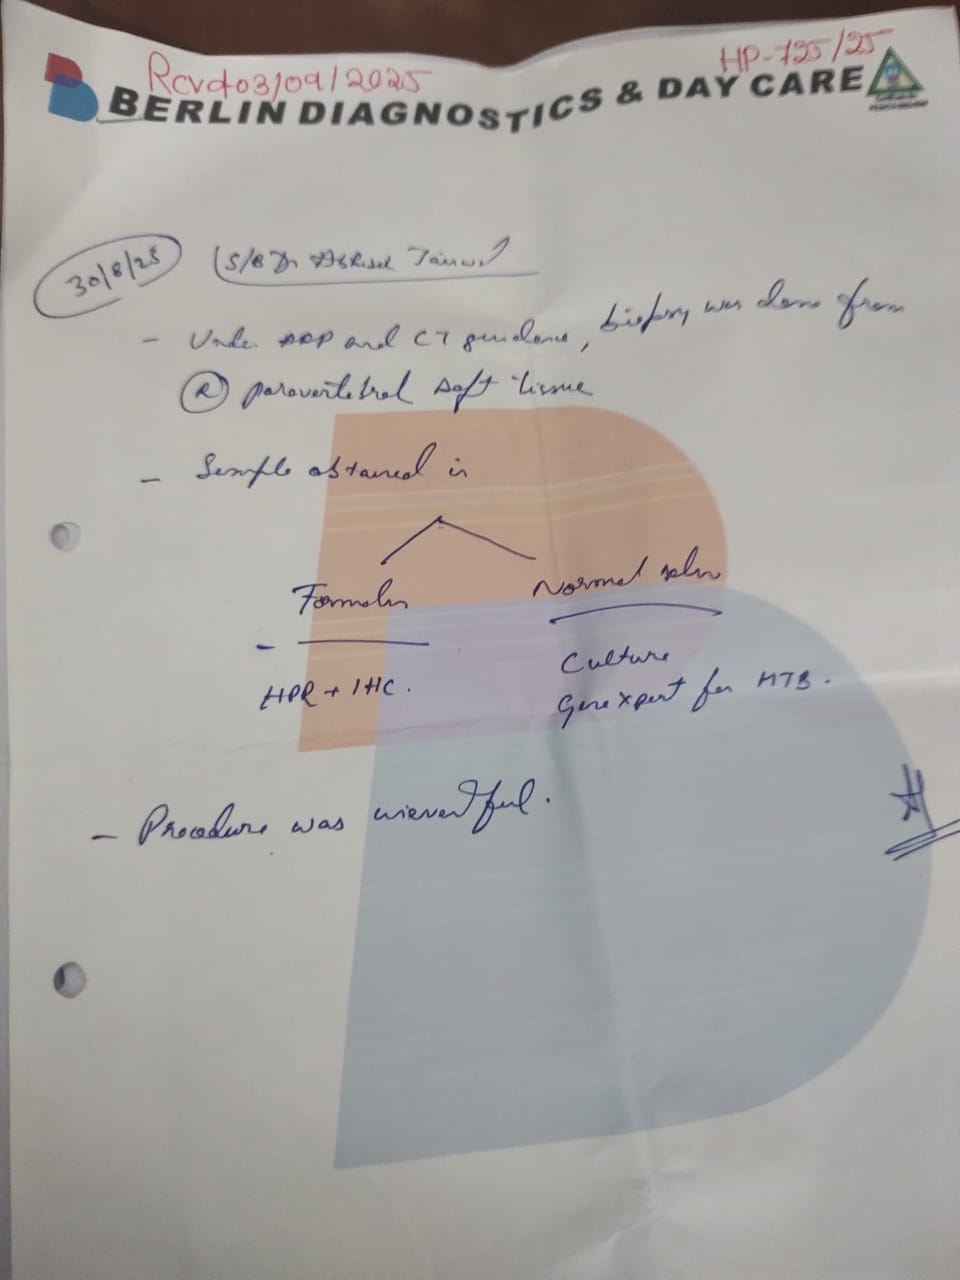 Rcvd 03/09/2025
HP-725/25
BERLIN DIAGNOSTICS & DAY CARE
30/8/25
S/B Dr
- Under AAP and CT guidance, biopsy was done from
(R) paravertebral soft tissue
- Sample obtained in
Formalin
Normal saline
- HPR + IHC.
Culture
Genexpert for MTB.
- Procedure was uneventful.